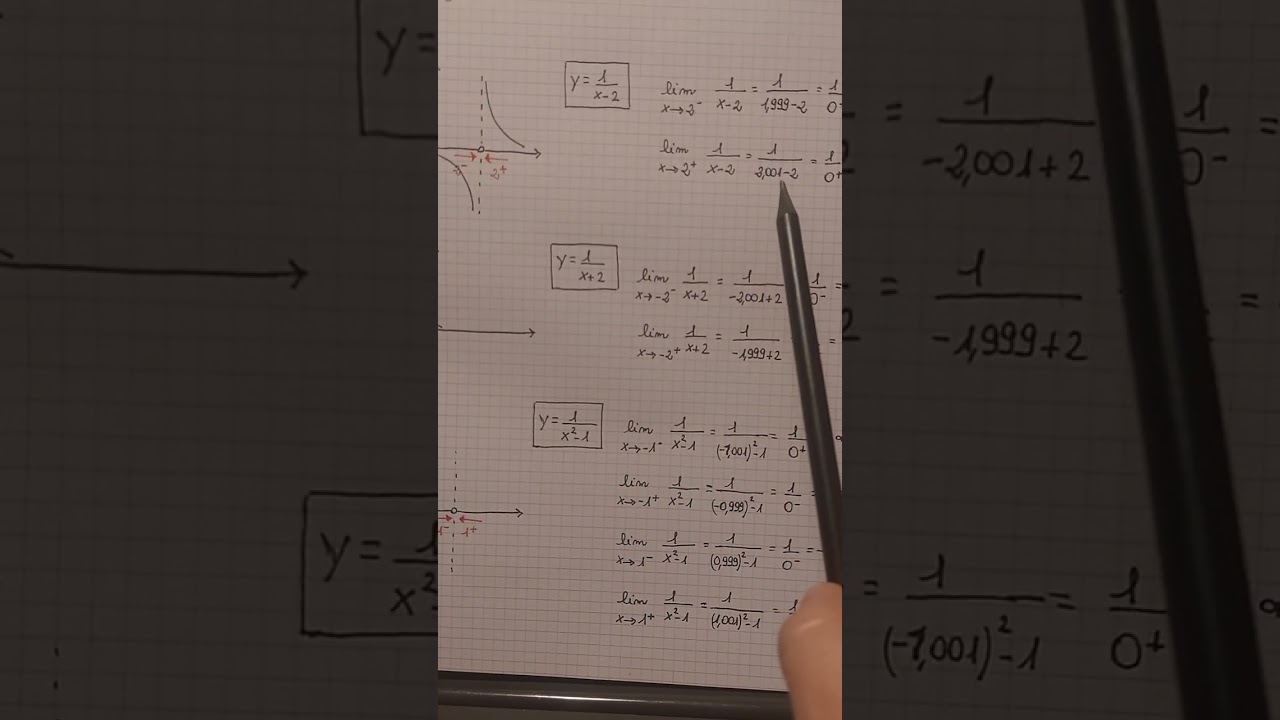 y = 1/(x-2)
lim x→2⁻ 1/(x-2) = 1/(1,999-2) = 1/0⁻
lim x→2⁺ 1/(x-2) = 1/(2,001-2) = 1/0⁺
2⁺
y = 1/(x+2)
lim x→-2⁻ 1/(x+2) = 1/(-2,001+2) 1/0⁻ =
lim x→-2⁺ 1/(x+2) = 1/(-1,999+2) =
y = 1/(x²-1)
lim x→-1⁻ 1/(x²-1) = 1/((-1,001)²-1) = 1/0⁺
lim x→-1⁺ 1/(x²-1) = 1/((-0,999)²-1) = 1/0⁻ =
1⁻ 1⁺
lim x→1⁻ 1/(x²-1) = 1/((0,999)²-1) = 1/0⁻ = -
lim x→1⁺ 1/(x²-1) = 1/((1,001)²-1) = 1